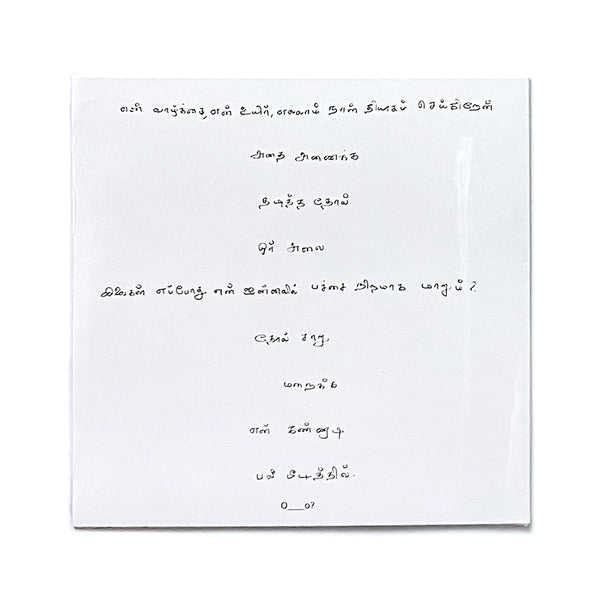 என் வாழ்க்கை, என் உயிர், எல்லாம் நான் தியாகம் செய்கிறேன்
அதை அணைக்க
தடித்த தோல்
ஓர் அலை
இலைகள் எப்போது என் ஜன்னலில் பச்சை நிறமாக மாறும்?
தோல் சாறு
மறைக்க
என் கண்ணாடி
பல் பீடத்தில்.
O___o?